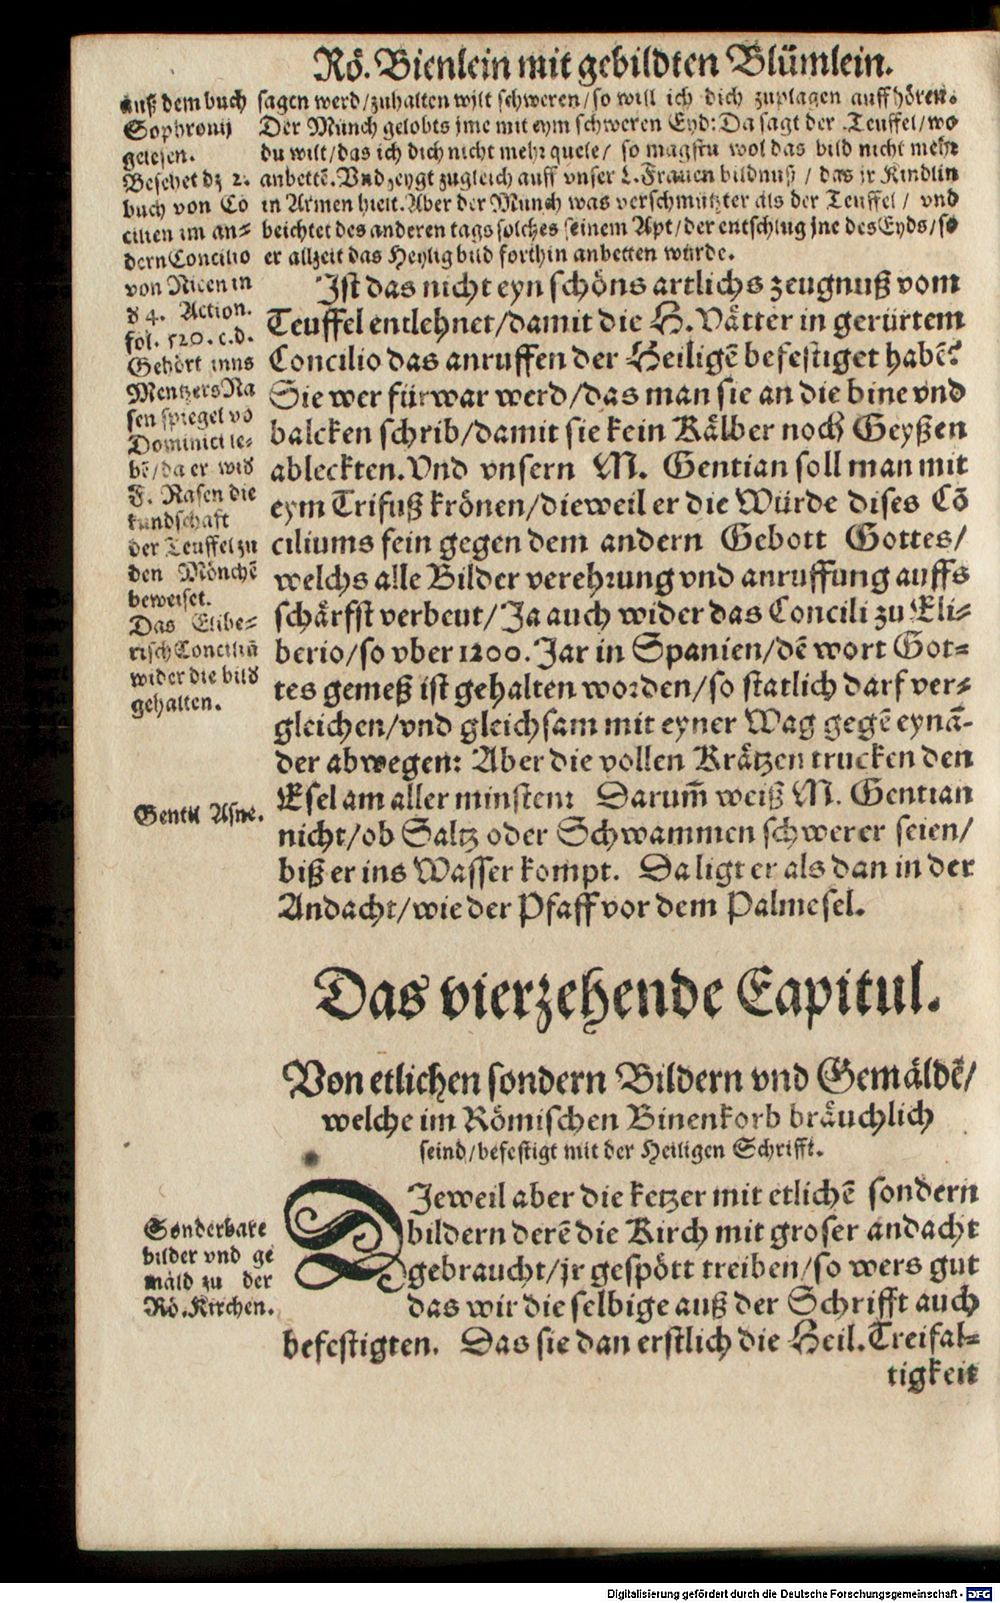 Rö. Bienlein mit gebildten Blümlein.
auß dem buch
Sophronij
gelesen.
Besehet dz 2.
buch von Co
cilien im an⸗
dern Concilio
von Nicen in
d 4. Action.
fol. 520. c. d.
Gehört inns
Mentzers Na
sen spiegel vō
Dominici le⸗
bē/da er wid
F. Nasen die
kundschaft
der Teuffel zu
den Mönchē
beweiset.
Das Elibe⸗
risch Conciliū
wider die bild
gehalten.
sagen werd/zuhalten wilt schweren/so will ich dich zuplagen auffhören.
Der Münch gelobts jme mit eym schweren Eyd: Da sagt der Teuffel/wo
du wilt/das ich dich nicht mehr quele/ so magstu wol das bild nicht mehr
anbettē. Vnd zeygt zugleich auff vnser L. Frauen bildnuß/ das jr Kindlin
in Armen hielt. Aber der Münch was verschmützter als der Teuffel/ vnd
beichtet des anderen tags solches seinem Apt/der entschlug jne des Eyds/so
er allzeit das Heylig bild forthin anbetten würde.
Ist das nicht eyn schöns artlichs zeugnuß vom
Teuffel entlehnet/damit die H. Vätter in gerürtem
Concilio das anruffen der Heiligē befestiget habē?
Sie wer fürwar werd/das man sie an die bine vnd
balcken schrib/damit sie kein Kälber noch Geyßen
ableckten. Vnd vnsern M. Gentian soll man mit
eym Trifuß krönen/dieweil er die Würde dises Cō
ciliums fein gegen dem andern Gebott Gottes/
welchs alle Bilder verehrung vnd anruffung auffs
schärfst verbeut/Ja auch wider das Concili zu Eli⸗
berio/so vber 1200. Jar in Spanien/dē wort Got⸗
tes gemeß ist gehalten worden/so statlich darf ver⸗
gleichen/vnd gleichsam mit eyner Wag gegē eynā⸗
der abwegen: Aber die vollen Krätzen trucken den
Esel am aller minsten: Darum̄ weiß M. Gentian
nicht/ob Saltz oder Schwammen schwerer seien/
biß er ins Wasser kompt. Da ligt er als dan in der
Andacht/wie der Pfaff vor dem Palmesel.
Gentil Asne.
Das vierzehende Capitul.
Von etlichen sondern Bildern vnd Gemäldē/
welche im Römischen Binenkorb bräuchlich
seind/befestigt mit der Heiligen Schrifft.
Sonderbare
bilder vnd ge
mäld zu der
Rö. Kirchen.
DJeweil aber die ketzer mit etlichē sondern
bildern derē die Kirch mit groser andacht
gebraucht/jr gespött treiben/so wers gut
das wir die selbige auß der Schrifft auch
befestigten. Das sie dan erstlich die Heil. Treifal⸗
tigkeit
Digitalisierung gefördert durch die Deutsche Forschungsgemeinschaft - DFG